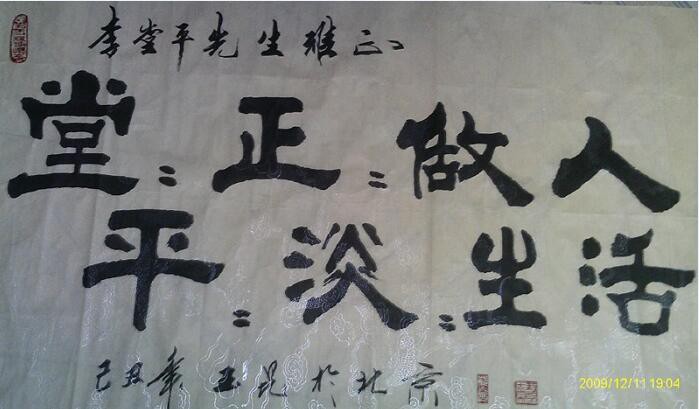 李堂平先生雅正
堂〻正〻做人
平〻淡〻生活
己丑年 玉昆於北京
2009/12/11 19:04